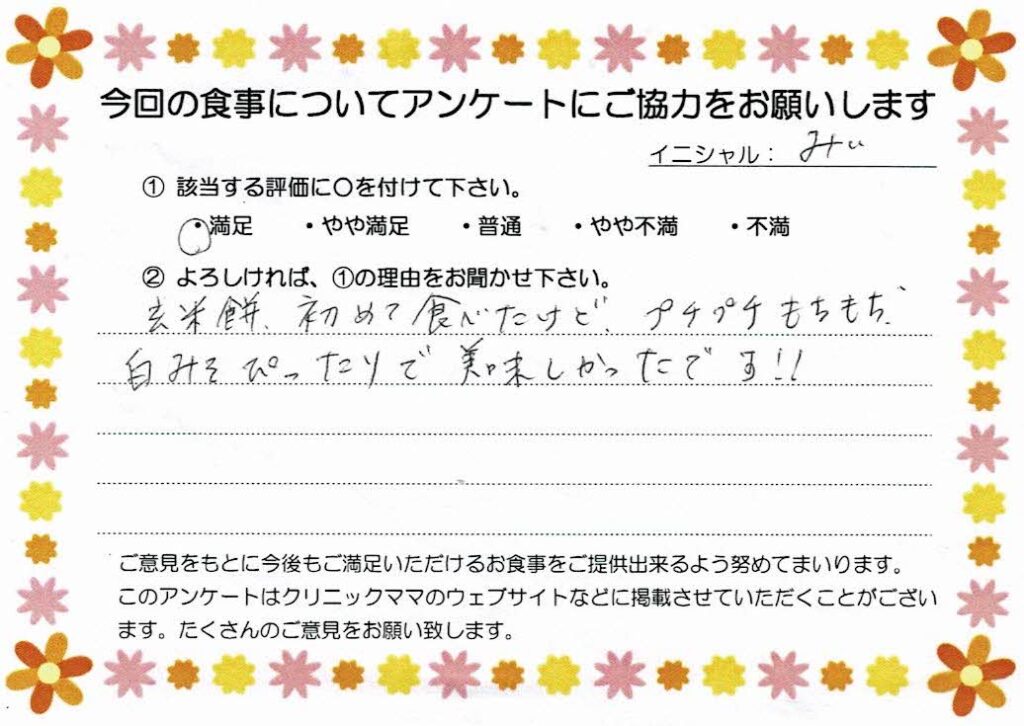 今回の食事についてアンケートにご協力をお願いします
イニシャル： みい
① 該当する評価に〇を付けて下さい。
・満足 ・やや満足 ・普通 ・やや不満 ・不満
② よろしければ、①の理由をお聞かせ下さい。
玄米餅、初めて食べたけど、プチプチもちもち、
白みそぴったりで美味しかったです!!
ご意見をもとに今後もご満足いただけるお食事をご提供出来るよう努めてまいります。
このアンケートはクリニックママのウェブサイトなどに掲載させていただくことがござい
ます。たくさんのご意見をお願い致します。